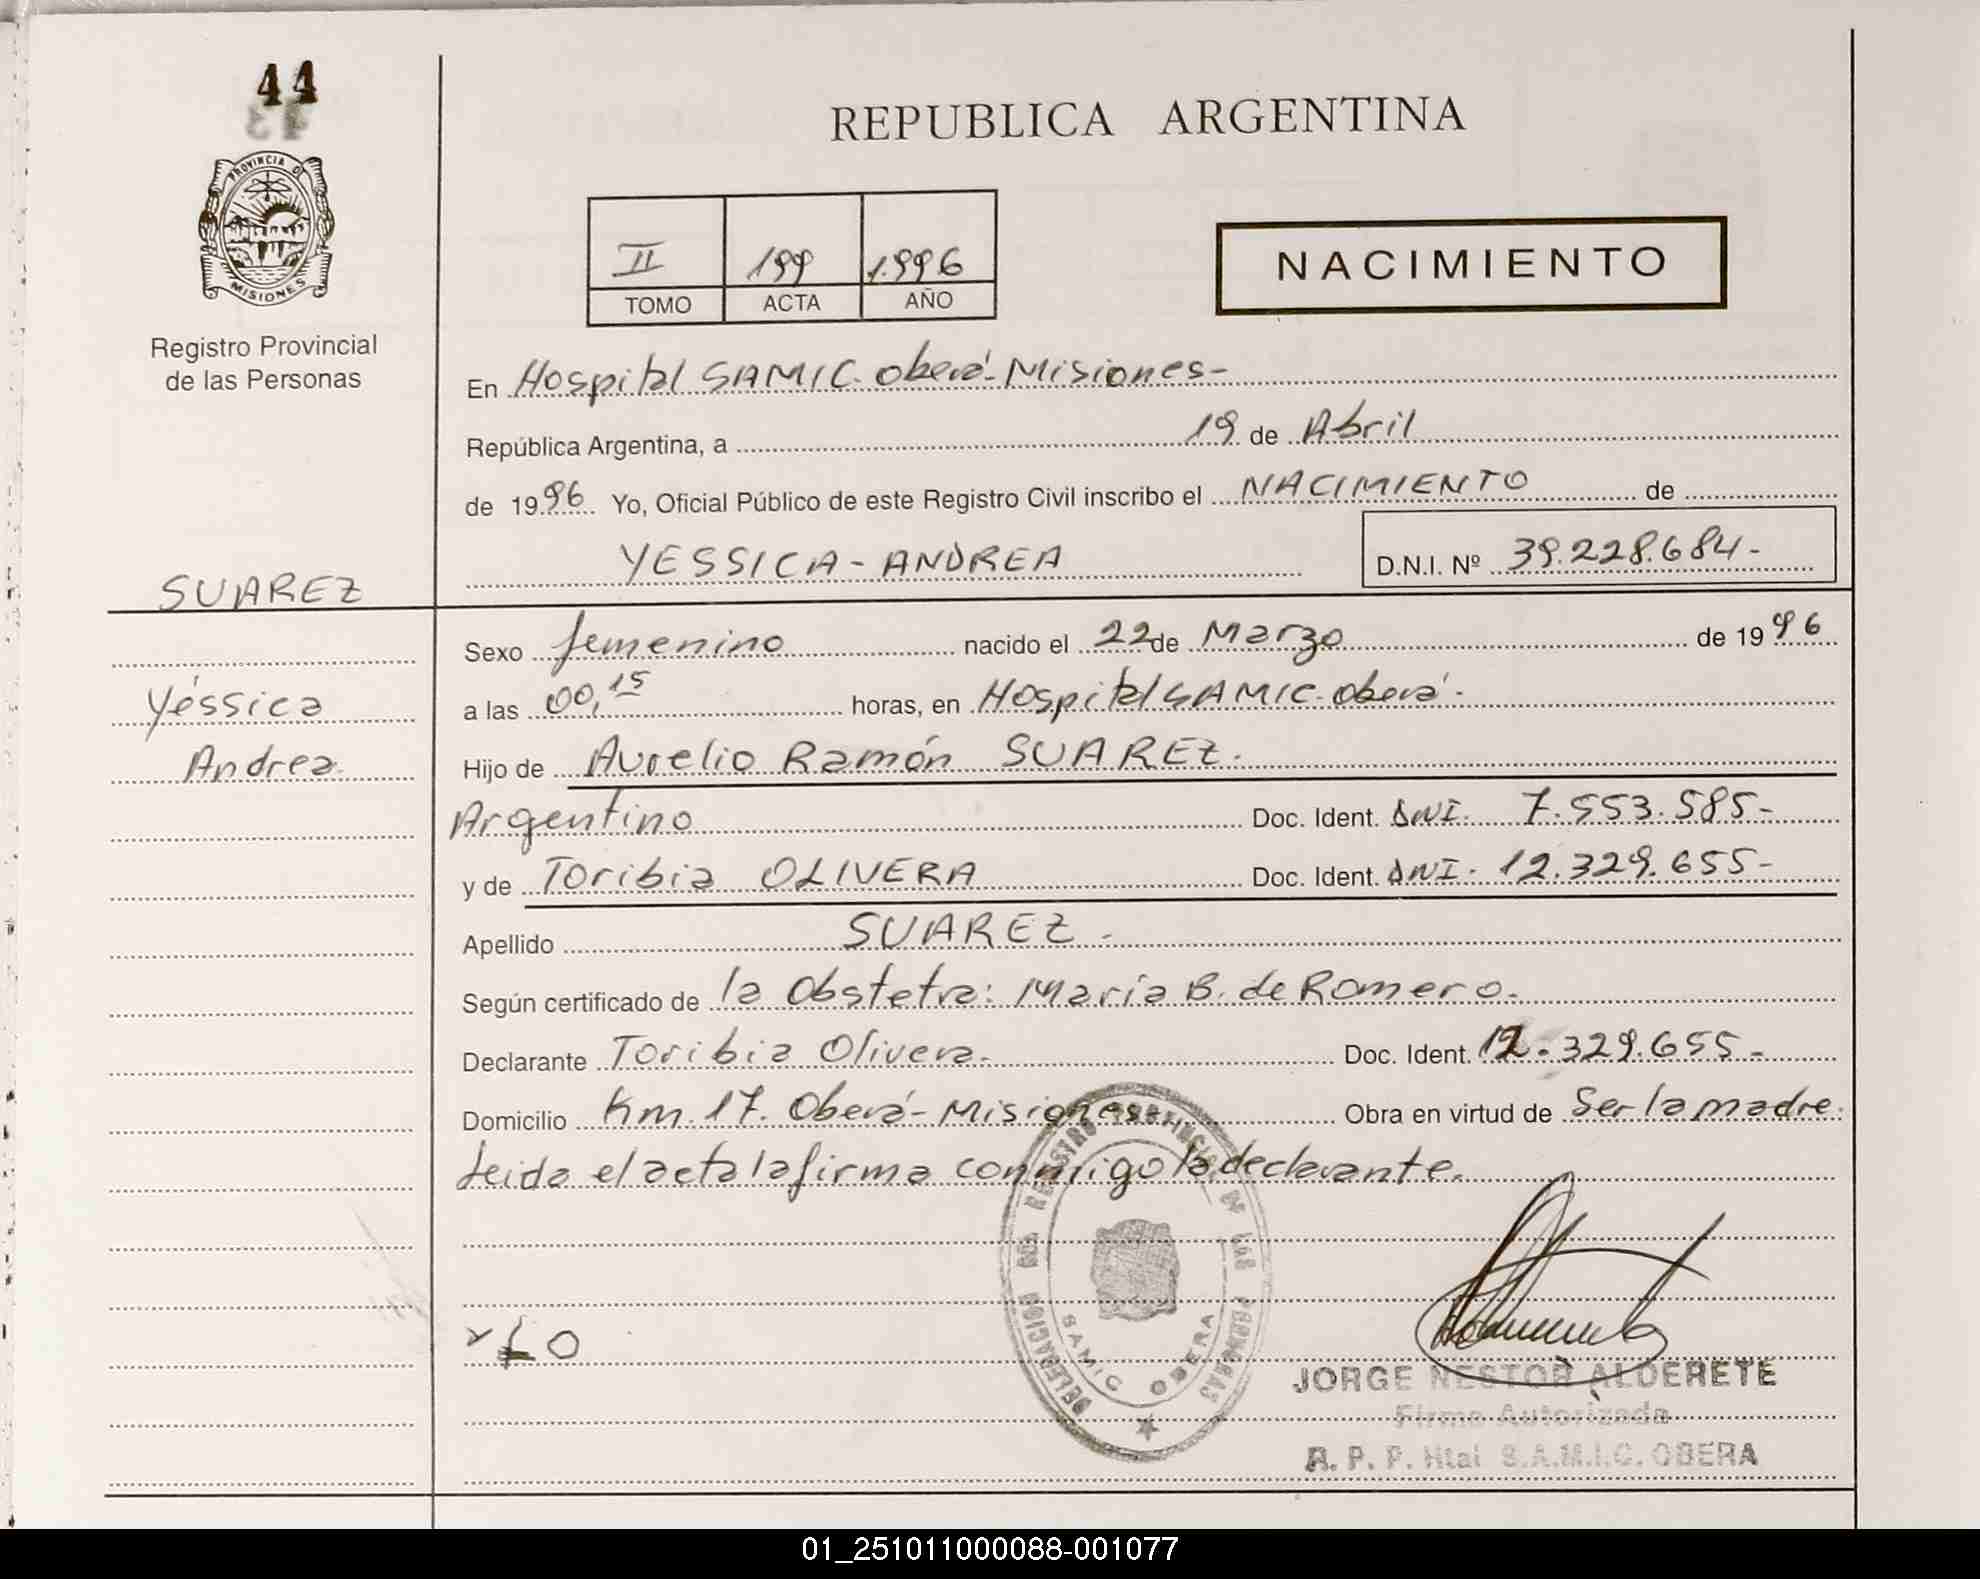 44
PROVINCIA DE
MISIONES
Registro Provincial
de las Personas
REPUBLICA ARGENTINA
II 199 1.996
TOMO ACTA AÑO
NACIMIENTO
En Hospital SAMIC. oberá-Misiones-
República Argentina, a 19 de Abril
de 1996. Yo, Oficial Público de este Registro Civil inscribo el NACIMIENTO de
YESSICA-ANDREA D.N.I. Nº 39.228.684-
SUAREZ
Yéssica
Andrea.
Sexo femenino nacido el 22 de Marzo de 1996
a las 00,15 horas, en Hospital SAMIC. oberá.
Hijo de Aurelio Ramón SUAREZ.
Argentino Doc. Ident. DNI. 7.553.585-
y de Toribia OLIVERA Doc. Ident. DNI. 12.329.655-
Apellido SUAREZ.
Según certificado de la Obstetra: María B. de Romero.
Declarante Toribia Olivera. Doc. Ident. 12.329.655-
Domicilio Km. 17. Oberá-Misiones. Obra en virtud de Ser la madre.
Leida el acta la firma conmigo la declarante.
DELEGACION DEL REGISTRO PROVINCIAL DE LAS PERSONAS
SAMIC OBERA
JORGE NESTOR ALDERETE
Firma Autorizada
R. P. P. Htal S.A.M.I.C. OBERA
01_251011000088-001077